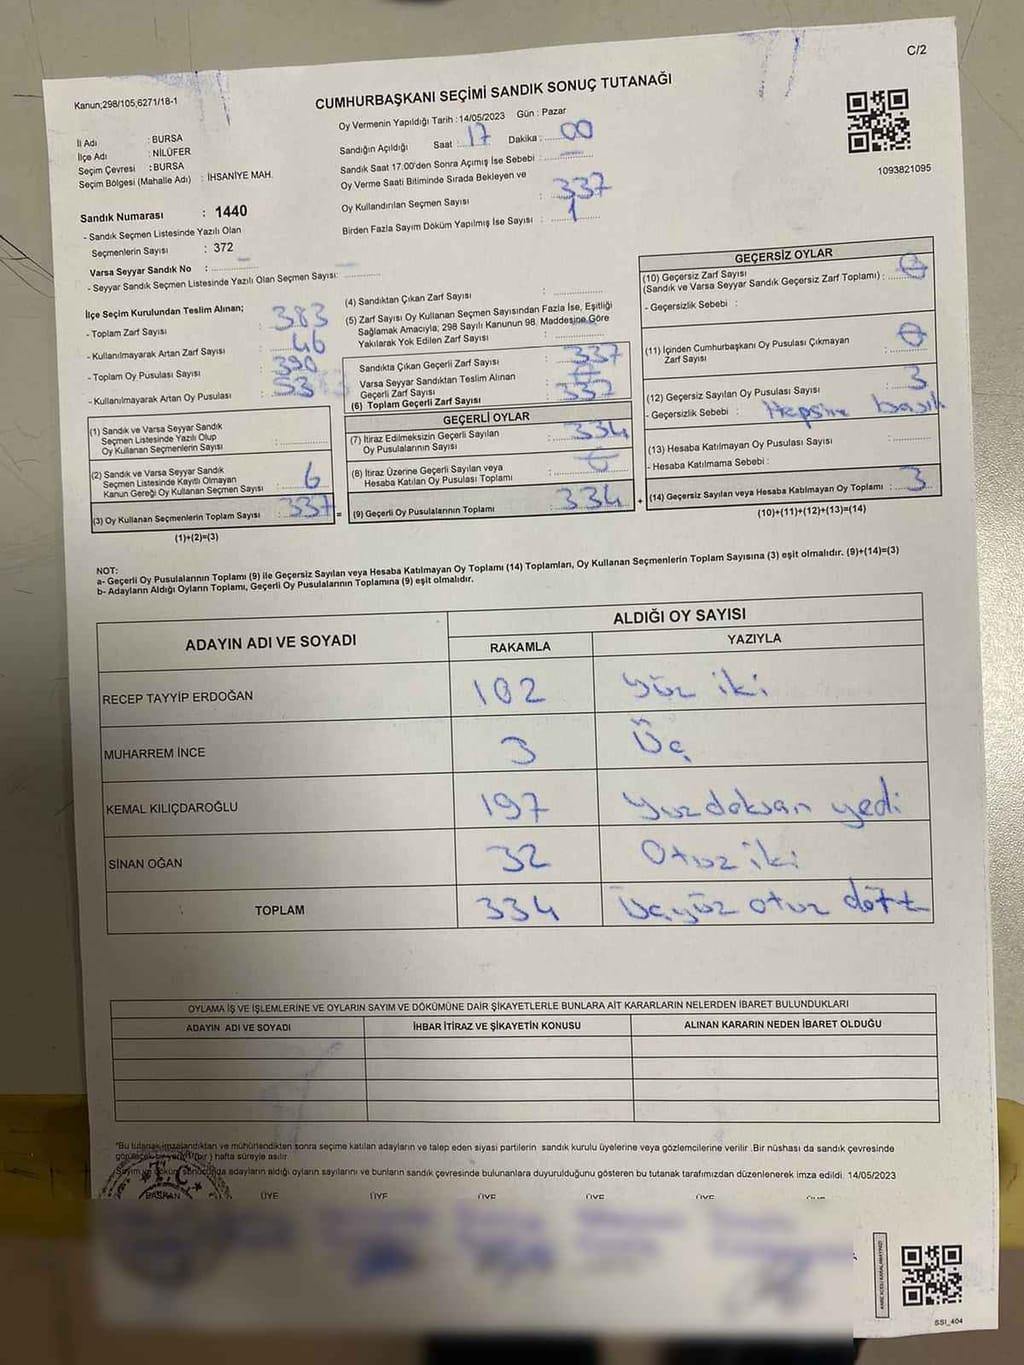 C/2
Kanun;298/105;6271/18-1
CUMHURBAŞKANI SEÇİMİ SANDIK SONUÇ TUTANAĞI
Oy Vermenin Yapıldığı Tarih : 14/05/2023 Gün : Pazar
İl Adı : BURSA
İlçe Adı : NİLÜFER
Seçim Çevresi : BURSA
Seçim Bölgesi (Mahalle Adı) : İHSANİYE MAH.
Sandığın Açıldığı Saat : 17 Dakika : 00
Sandık Saat 17:00'den Sonra Açımış İse Sebebi :
Oy Verme Saati Bitiminde Sırada Bekleyen ve
Oy Kullandırılan Seçmen Sayısı : 337
Birden Fazla Sayım Döküm Yapılmış İse Sayısı : 1
1093821095
Sandık Numarası : 1440
- Sandık Seçmen Listesinde Yazılı Olan
Seçmenlerin Sayısı : 372
Varsa Seyyar Sandık No :
- Seyyar Sandık Seçmen Listesinde Yazılı Olan Seçmen Sayısı:
İlçe Seçim Kurulundan Teslim Alınan;
- Toplam Zarf Sayısı : 383
- Kullanılmayarak Artan Zarf Sayısı : 46
- Toplam Oy Pusulası Sayısı : 390
- Kullanılmayarak Artan Oy Pusulası : 53
(1) Sandık ve Varsa Seyyar Sandık
Seçmen Listesinde Yazılı Olup
Oy Kullanan Seçmenlerin Sayısı :
(2) Sandık ve Varsa Seyyar Sandık
Seçmen Listesinde Kayıtlı Olmayan
Kanun Gereği Oy Kullanan Seçmen Sayısı : 6
(3) Oy Kullanan Seçmenlerin Toplam Sayısı : 337 =
(1)+(2)=(3)
(4) Sandıktan Çıkan Zarf Sayısı :
(5) Zarf Sayısı Oy Kullanan Seçmen Sayısından Fazla İse, Eşitliği
Sağlamak Amacıyla; 298 Sayılı Kanunun 98. Maddesine Göre
Yakılarak Yok Edilen Zarf Sayısı :
Sandıkta Çıkan Geçerli Zarf Sayısı : 337
Varsa Seyyar Sandıktan Teslim Alınan
Geçerli Zarf Sayısı :
(6) Toplam Geçerli Zarf Sayısı : 337
GEÇERLİ OYLAR
(7) İtiraz Edilmeksizin Geçerli Sayılan
Oy Pusulalarının Sayısı : 334
(8) İtiraz Üzerine Geçerli Sayılan veya
Hesaba Katılan Oy Pusulası Toplamı :
(9) Geçerli Oy Pusulalarının Toplamı : 334 +
GEÇERSİZ OYLAR
(10) Geçersiz Zarf Sayısı
(Sandık ve Varsa Seyyar Sandık Geçersiz Zarf Toplamı) :
- Geçersizlik Sebebi :
(11) İçinden Cumhurbaşkanı Oy Pusulası Çıkmayan
Zarf Sayısı :
(12) Geçersiz Sayılan Oy Pusulası Sayısı : 3
- Geçersizlik Sebebi : Hepsine basılı
(13) Hesaba Katılmayan Oy Pusulası Sayısı :
- Hesaba Katılmama Sebebi :
(14) Geçersiz Sayılan veya Hesaba Katılmayan Oy Toplamı : 3
(10)+(11)+(12)+(13)=(14)
NOT:
a- Geçerli Oy Pusulalarının Toplamı (9) ile Geçersiz Sayılan veya Hesaba Katılmayan Oy Toplamı (14) Toplamları, Oy Kullanan Seçmenlerin Toplam Sayısına (3) eşit olmalıdır. (9)+(14)=(3)
b- Adayların Aldığı Oyların Toplamı, Geçerli Oy Pusulalarının Toplamına (9) eşit olmalıdır.
ADAYIN ADI VE SOYADI ALDIĞI OY SAYISI
RAKAMLA YAZIYLA
RECEP TAYYİP ERDOĞAN 102 Yüz iki
MUHARREM İNCE 3 Üç
KEMAL KILIÇDAROĞLU 197 Yüzdoksan yedi
SİNAN OĞAN 32 Otuz iki
TOPLAM 334 Üçyüz otuz dört
OYLAMA İŞ VE İŞLEMLERİNE VE OYLARIN SAYIM VE DÖKÜMÜNE DAİR ŞİKAYETLERLE BUNLARA AİT KARARLARIN NELERDEN İBARET BULUNDUKLARI
ADAYIN ADI VE SOYADI İHBAR İTİRAZ VE ŞİKAYETİN KONUSU ALINAN KARARIN NEDEN İBARET OLDUĞU
*Bu tutanak imzalandıktan ve mühürlendikten sonra seçime katılan adayların ve talep eden siyasi partilerin sandık kurulu üyelerine veya gözlemcilerine verilir .Bir nüshası da sandık çevresinde
görülecek bir yere (bir ) hafta süreyle asılır.
Sayım ve döküm sonucunda adayların aldığı oyların sayılarını ve bunların sandık çevresinde bulunanlara duyurulduğunu gösteren bu tutanak tarafımızdan düzenlenerek imza edildi. 14/05/2023
T.C.
BAŞKAN ÜYE ÜYE ÜYE ÜYE ÜYE ÜYE
SSI_404